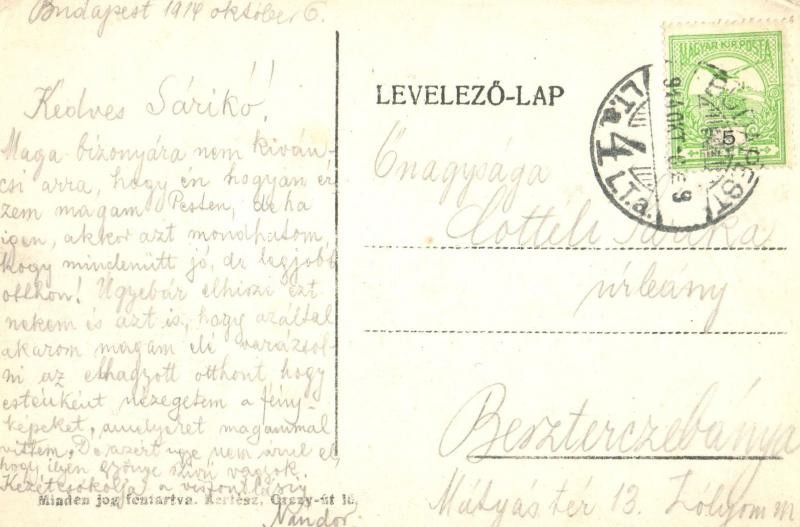 Budapest 1914 október 6.
Kedves Sárikó!
Maga bizonyára nem kiván-
csi arra, hogy én hogyan ér-
zem magam Pesten, de ha
igen, akkor azt mondhatom,
hogy mindenütt jó, de legjobb
otthon! Ugyebár elhiszi ezt
nekem és azt is, hogy azáltal
akarom magam elé varázsol-
ni az elhagyott otthont, hogy
esténként nézegetem a fény-
képeket, amelyeket magammal
vittem. De azért ugye nem árul el,
hogy ilyen gyönge szivű vagyok.
Kezét csókolja a viszontlátásig
Nándor.
Minden jog fentartva. Kertész, Orczy-út
LEVELEZŐ-LAP
MAGYAR KIR. POSTA
5
BUDAPEST
4
I.T.a.
I.T.a.
Őnagysága
Sárika
úrleány
Beszterczebánya
Mátyás tér 13. Zolyom m